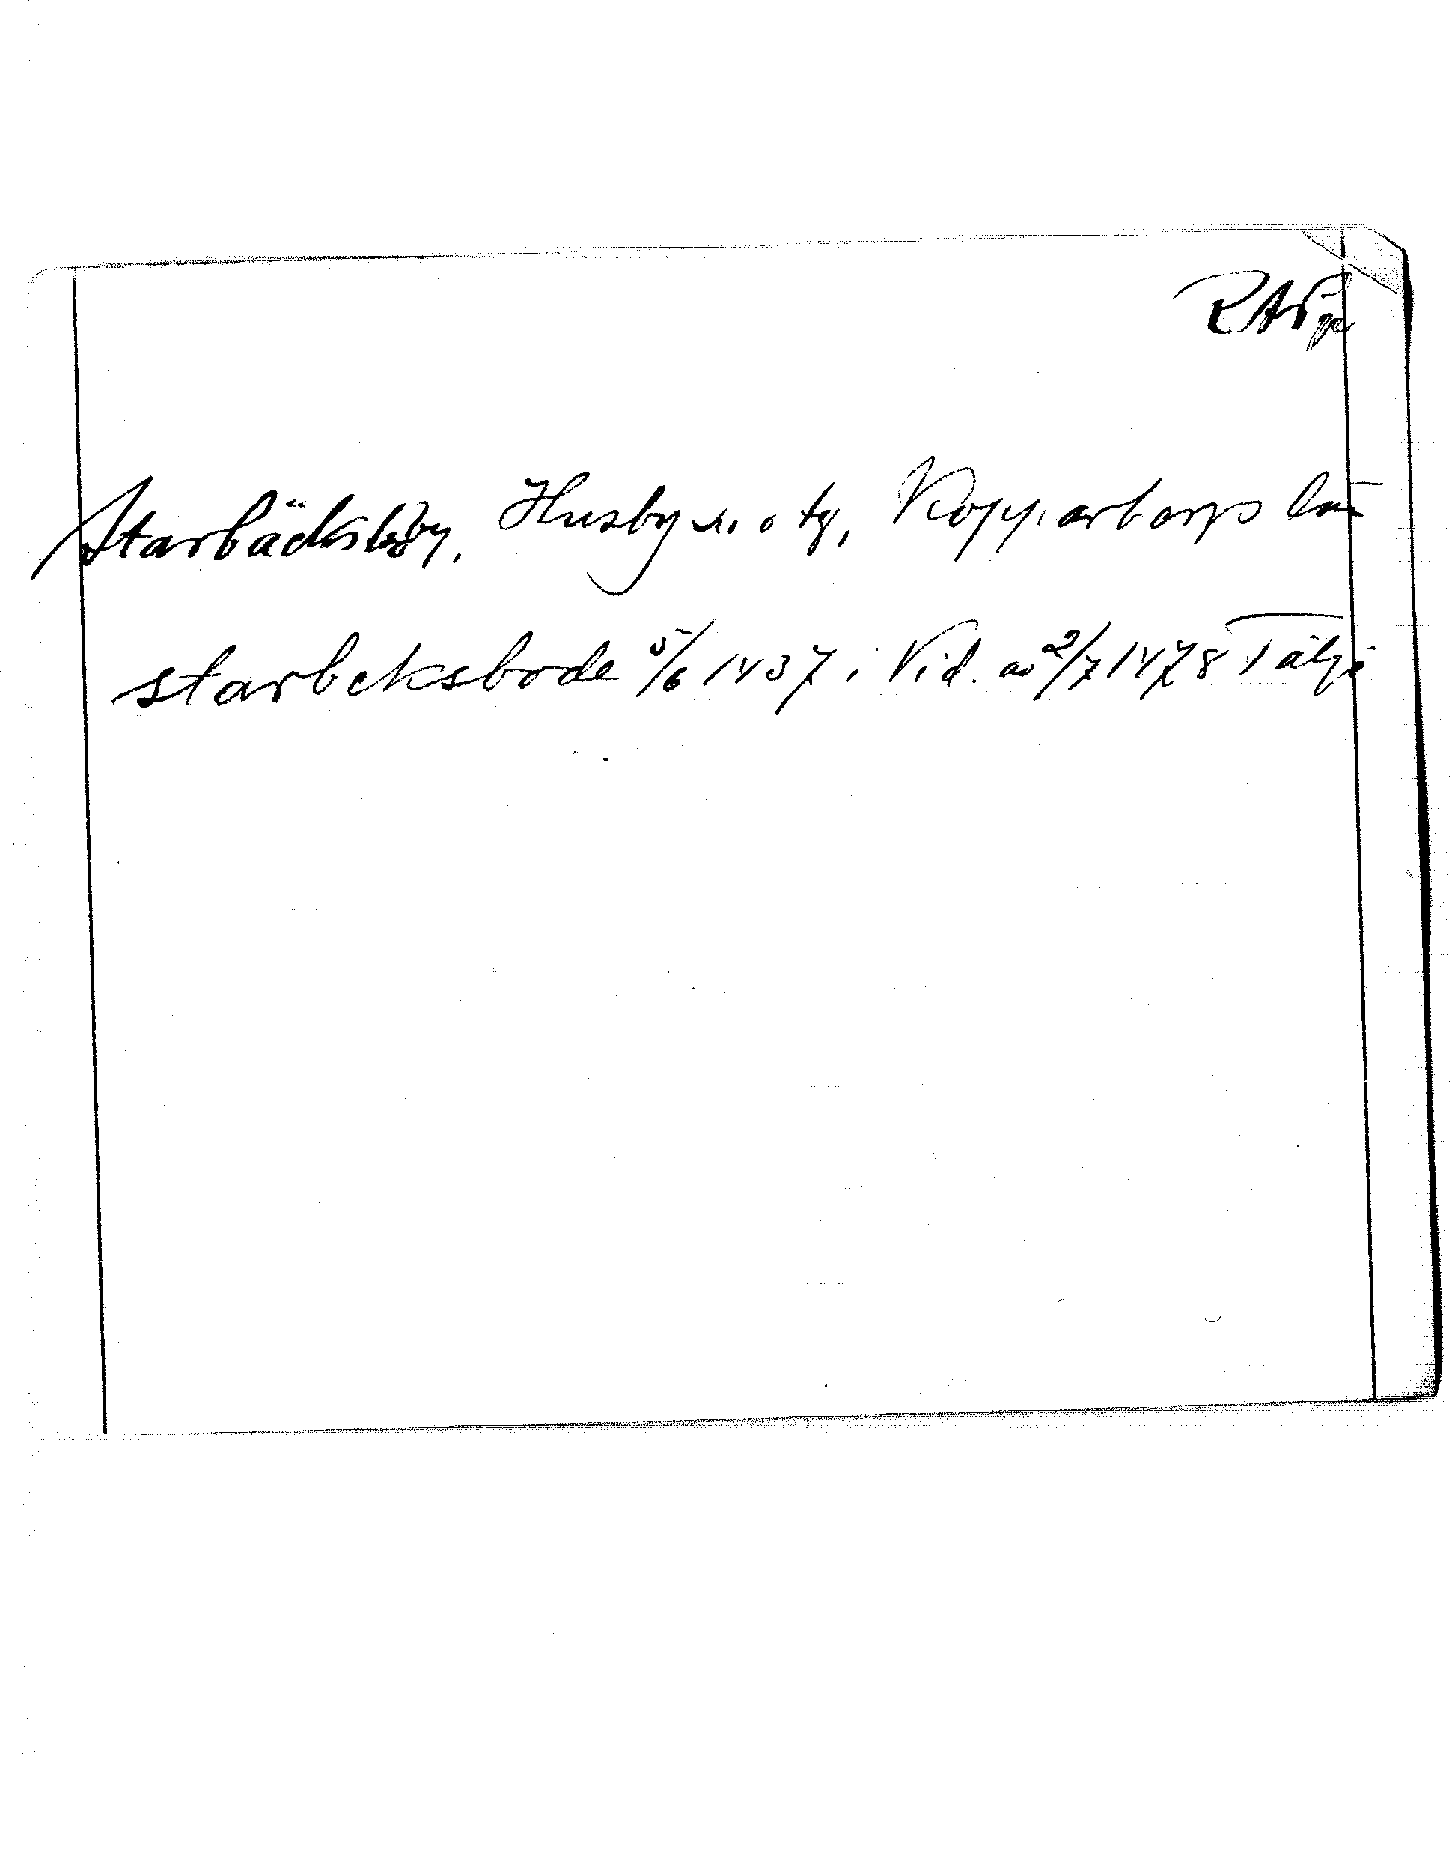 RAp
Starbäcksby, Husby sn. o tg, Kopparbergs län
starbeksbode 5/6 1437 i Vid. av 2/7 1478 Tälje